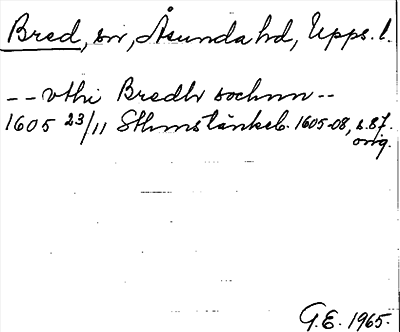 Bred, sn, Åsunda hd, Upps. l.
-- vthi Bredhr sochnn --
1605 23/11 Sthmstänkeb. 1605-08, s. 87.
orig.
G.E. 1965.